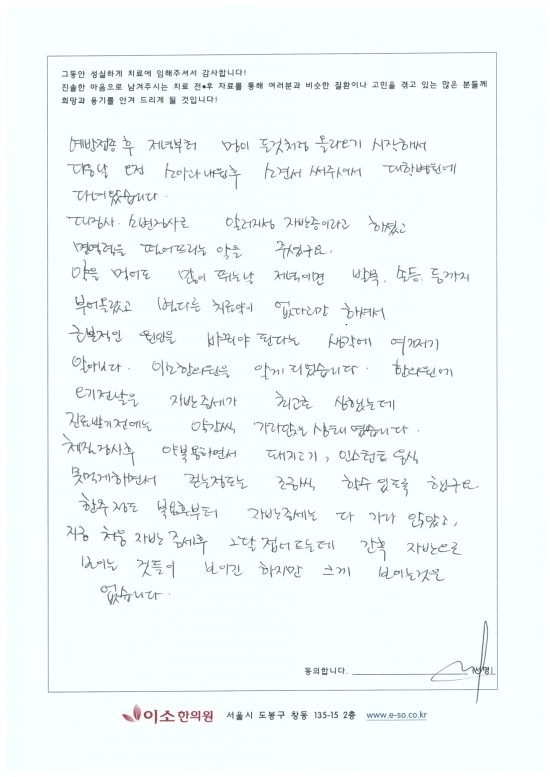 그동안 성실하게 치료에 임해주셔서 감사합니다!
진솔한 마음으로 남겨주시는 치료 전•후 자료를 통해 여러분과 비슷한 질환이나 고민을 겪고 있는 많은 분들께
희망과 용기를 안겨 드리게 될 것입니다!
예방접종후 저녁부터 멍이 든것처럼 올라오기 시작해서
다음날 오전 소아과내원후 소견서 써주셔서 대학병원에
다녀왔습니다.
피검사. 소변검사로 알러지성 자반증이라고 하셨고
면역력을 떨어뜨리는 약을 주셨구요.
약을 먹어도 많이 뛰는날 저녁이면 발목, 손등, 등까지
부어올랐고 별다른 치료약이 없다고만 하셔서
근본적인 원인을 바꿔야 한다는 생각에 여기저기
알아보다. 이소한의원을 알게 되었습니다. 한의원에
오기전날은 자반증세가 최고로 심했는데
진료받기전에는 약간씩 가라앉은 상태였습니다.
체질검사후 약복용하면서 돼지고기, 인스턴트 음식
못먹게하면서 걷는정도는 조금씩 할수 있도록 했구요.
한주 정도 복용후부터 자반증세는 다 가라 앉았고,
지금 처음 자반 증세후 2달 접어드는데 간혹 자반으로
보이는 것들이 보이긴 하지만 크게 보이는것은
없습니다.
동의합니다. (서명)
이소한의원 서울시 도봉구 창동 135-15 2층 www.e-so.co.kr